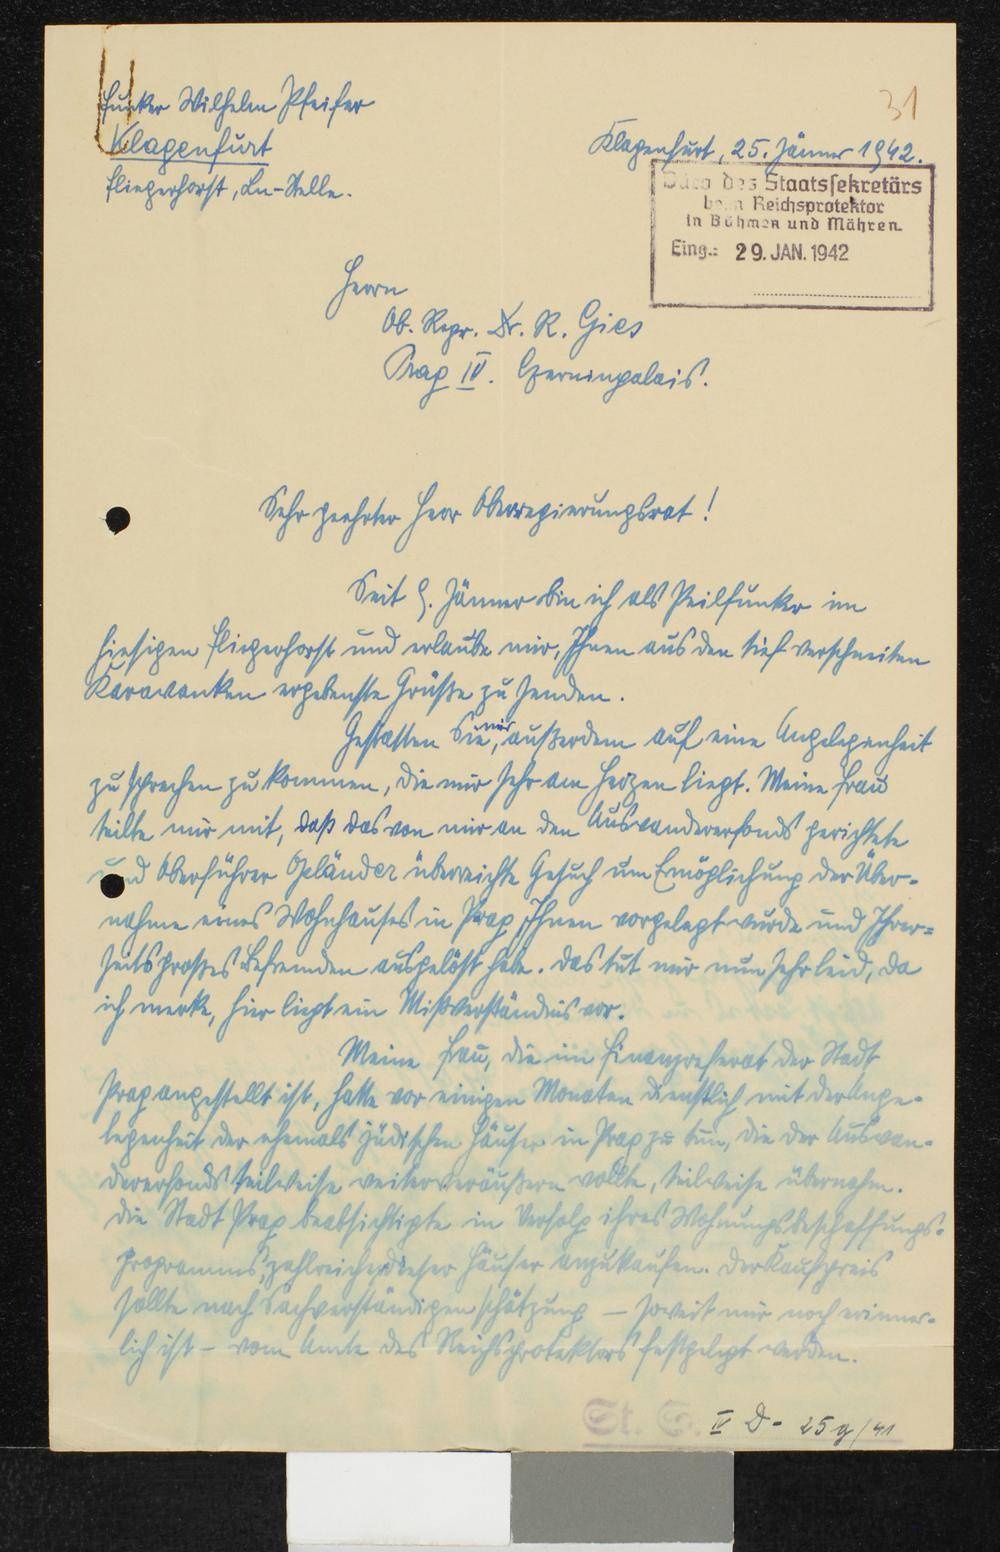 31
Funker Wilhelm Pfeifer
Klagenfurt
Fliegerhorst, Ln-Stelle.
Klagenfurt, 25. Jänner 1942.
Büro des Staatssekretärs
beim Reichsprotektor
in Böhmen und Mähren
Eing.: 29. JAN. 1942
Herrn
Ob. Regr. Dr. R. Gies
Prag IV. Czerninpalais.
Sehr geehrter Herr Oberregierungsrat!
Seit 9. Jänner bin ich als Peilfunker im
hiesigen Fliegerhorst und erlaube mir, Ihnen aus den tief verschneiten
Karawanken ergebenste Grüße zu senden.
Gestatten Sie mir, außerdem auf eine Angelegenheit
zu sprechen zu kommen, die mir sehr am Herzen liegt. Meine Frau
teilte mir mit, daß das von mir an den Auswandererfonds gerichtete
und Oberführer Opländer überreichte Gesuch um Ermöglichung der Über-
nahme eines Wohnhauses in Prag Ihnen vorgelegt wurde und Ihrer-
seits großes Befremden ausgelöst habe. Das tut mir nun sehr leid, da
ich merke, hier liegt ein Mißverständnis vor.
Meine Frau, die im Finanzreferat der Stadt
Prag angestellt ist, hatte vor einigen Monaten dienstlich mit der Ange-
legenheit der ehemals jüdischen Häuser in Prag zu tun, die der Auswan-
dererfonds teilweise weiterveräußern wollte, teilweise übernahm.
Die Stadt Prag beabsichtigte in Verfolg ihres Wohnungsbeschaffungs-
programms, zahlreiche dieser Häuser anzukaufen. Der Kaufpreis
sollte nach Sachverständigenschätzung – soweit mir noch erinner-
lich ist – vom Amte des Reichsprotektors festgelegt werden.
St. S. IV D - 25g/41